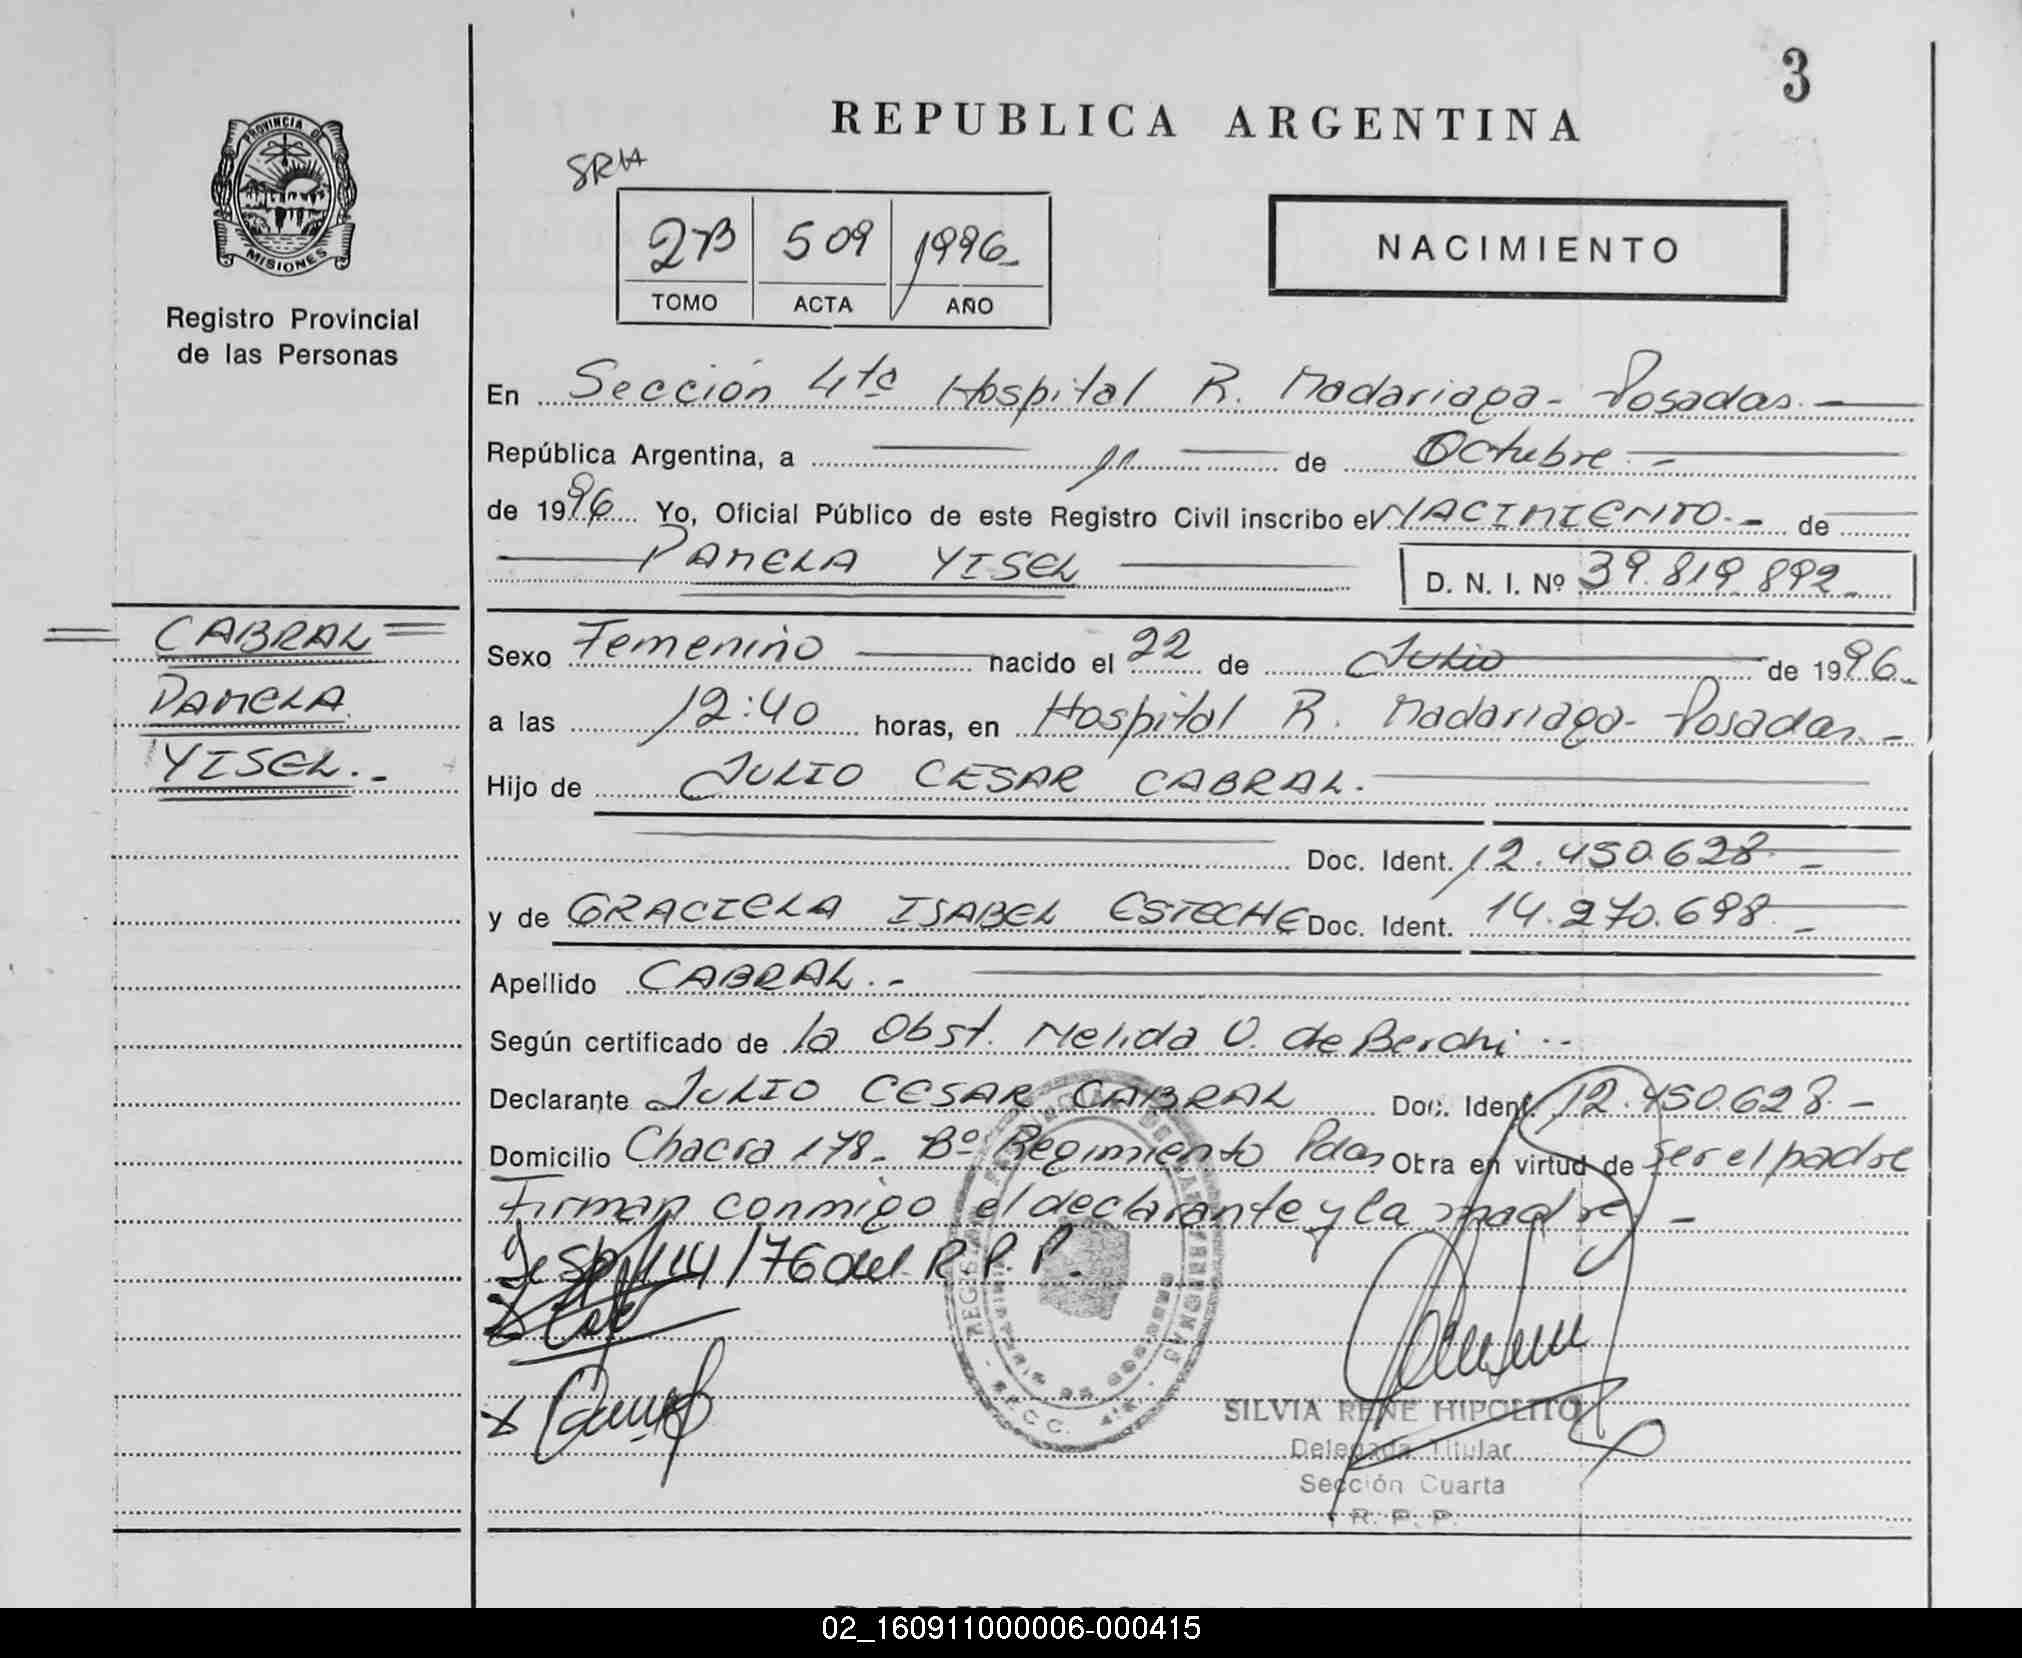 3
REPUBLICA ARGENTINA
PROVINCIA DE
MISIONES
Registro Provincial
de las Personas
2B 509 1996_
TOMO ACTA AÑO
NACIMIENTO
En Sección 4ta Hospital R. Madariaga - Posadas. -
República Argentina, a 11 de Octubre. -
de 1996 Yo, Oficial Público de este Registro Civil inscribo el NACIMIENTO. - de
PAMELA YISEL D. N. I. Nº 39.819.892_
CABRAL
PAMELA
YISEL. -
Sexo Femenino nacido el 22 de Julio de 1996._
a las 12:40 horas, en Hospital R. Madariaga - Posadas. -
Hijo de JULIO CESAR CABRAL.
Doc. Ident. 12.450.628. -
y de GRACIELA ISABEL ESTECHE Doc. Ident. 14.270.698. -
Apellido CABRAL. -
Según certificado de la Obst. Nelida O. de Berchi. -
Declarante JULIO CESAR CABRAL Doc. Ident. 12.450.628 -
Domicilio Chacra 178. Bº Regimiento Pdas Obra en virtud de ser el padre
Firman conmigo el declarante y la madre. -
114/76 del R.P.P.
SILVIA RENE HIPOLITO
Delegada Titular
Sección Cuarta
R. P. P.
02_160911000006-000415